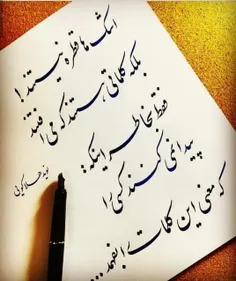 اشک ها قطره نیستند!
بلکه کلماتی هستند که می افتند
فقط بخاطر اینکه:
پیدا نمی کنند کسی را
که معنی این کلمات را بفهمد...